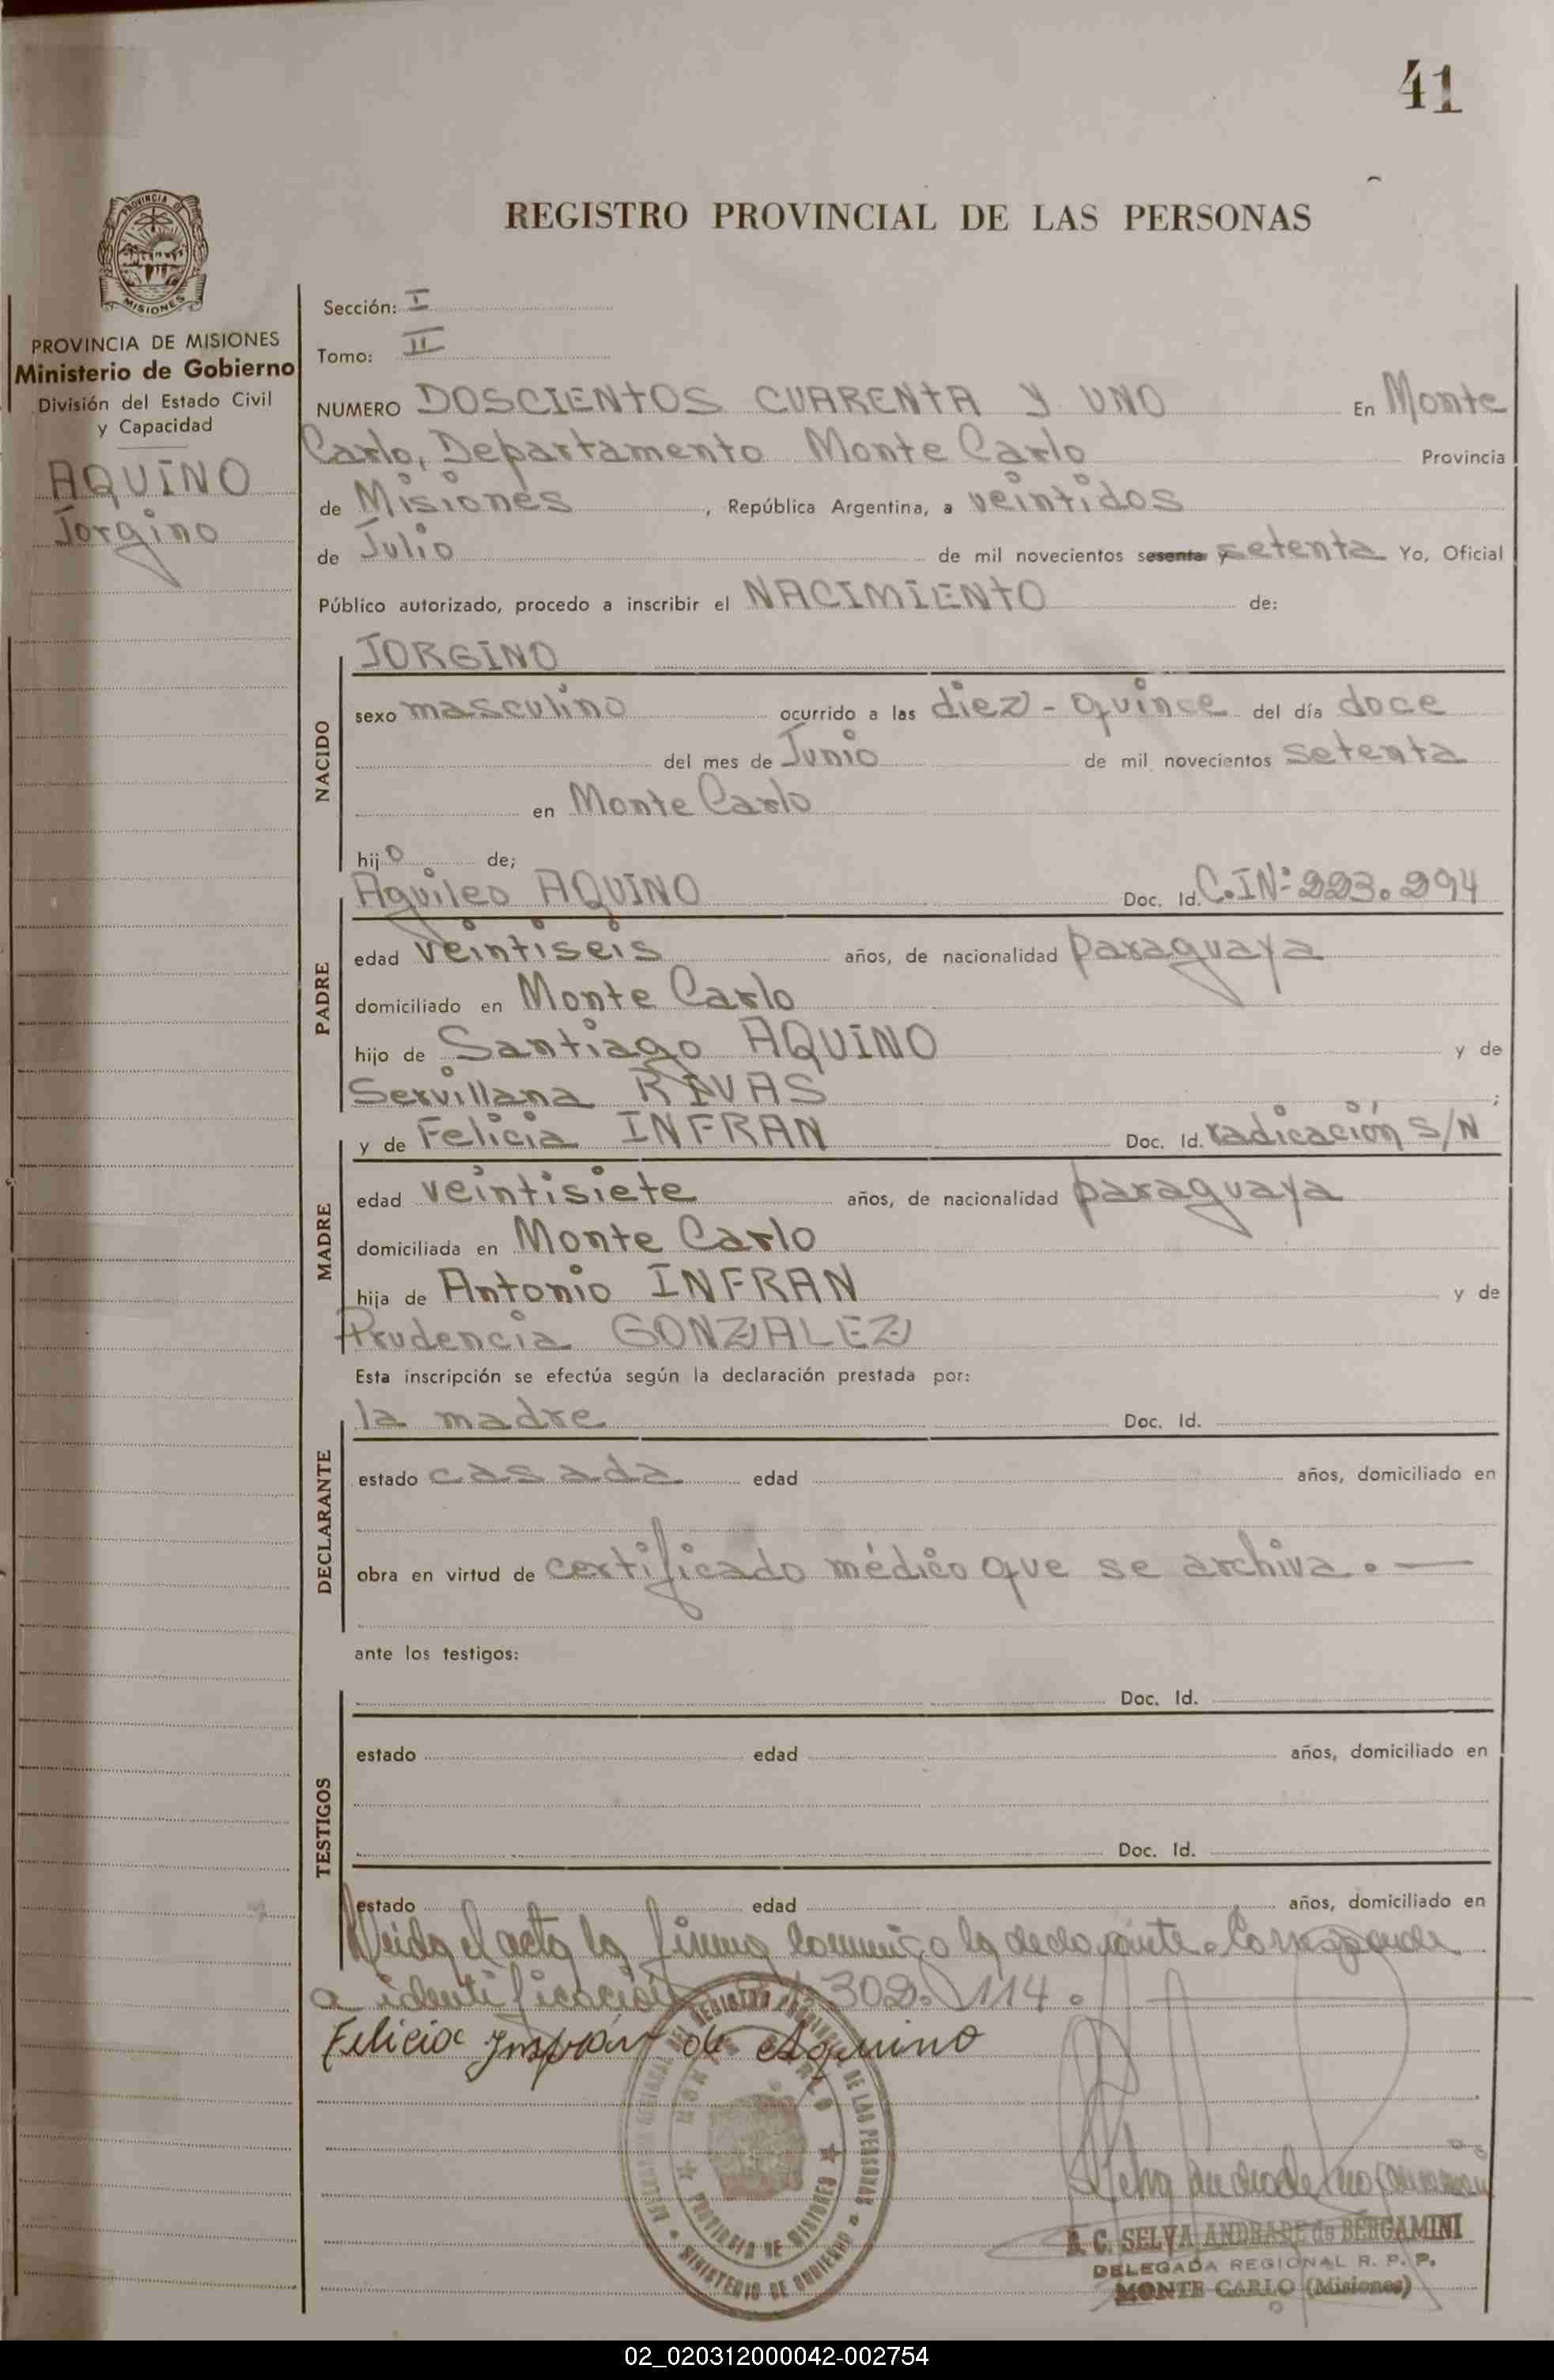 41
REGISTRO PROVINCIAL DE LAS PERSONAS
PROVINCIA DE MISIONES
Ministerio de Gobierno
División del Estado Civil
y Capacidad
AQUINO
Jorgino
Sección: I
Tomo: II
NUMERO DOSCIENTOS CUARENTA Y UNO En Monte
Carlo, Departamento Monte Carlo Provincia
de Misiones, República Argentina, a veintidos
de Julio de mil novecientos sesenta y setenta Yo, Oficial
Público autorizado, procedo a inscribir el NACIMIENTO de:
NACIDO
JORGINO
sexo masculino ocurrido a las diez - quince del día doce
del mes de Junio de mil novecientos setenta
en Monte Carlo
hijo de;
PADRE
Aquileo AQUINO Doc. Id. C.IN: 223.294
edad veintiseis años, de nacionalidad paraguaya
domiciliado en Monte Carlo
hijo de Santiago AQUINO y de
Servillana RIVAS ;
MADRE
y de Felicia INFRAN Doc. Id. radicación S/N
edad veintisiete años, de nacionalidad paraguaya
domiciliada en Monte Carlo
hija de Antonio INFRAN y de
Prudencia GONZALEZ
Esta inscripción se efectúa según la declaración prestada por:
DECLARANTE
la madre Doc. Id.
estado casada edad años, domiciliado en
obra en virtud de certificado médico que se archiva. —
ante los testigos:
TESTIGOS
Doc. Id.
estado edad años, domiciliado en
Doc. Id.
estado edad años, domiciliado en
el acta la firma conmigo la declarante. Corresponde
a identificación 302.114.
Felicia Infran de Aquino
REGISTRO PROVINCIAL DE LAS PERSONAS
MINISTERIO DE GOBIERNO
MONTE CARLO
PROVINCIA DE MISIONES
A. C. SELVA ANDRADE de BERGAMINI
DELEGADA REGIONAL R. P. P.
MONTE CARLO (Misiones)
02_020312000042-002754